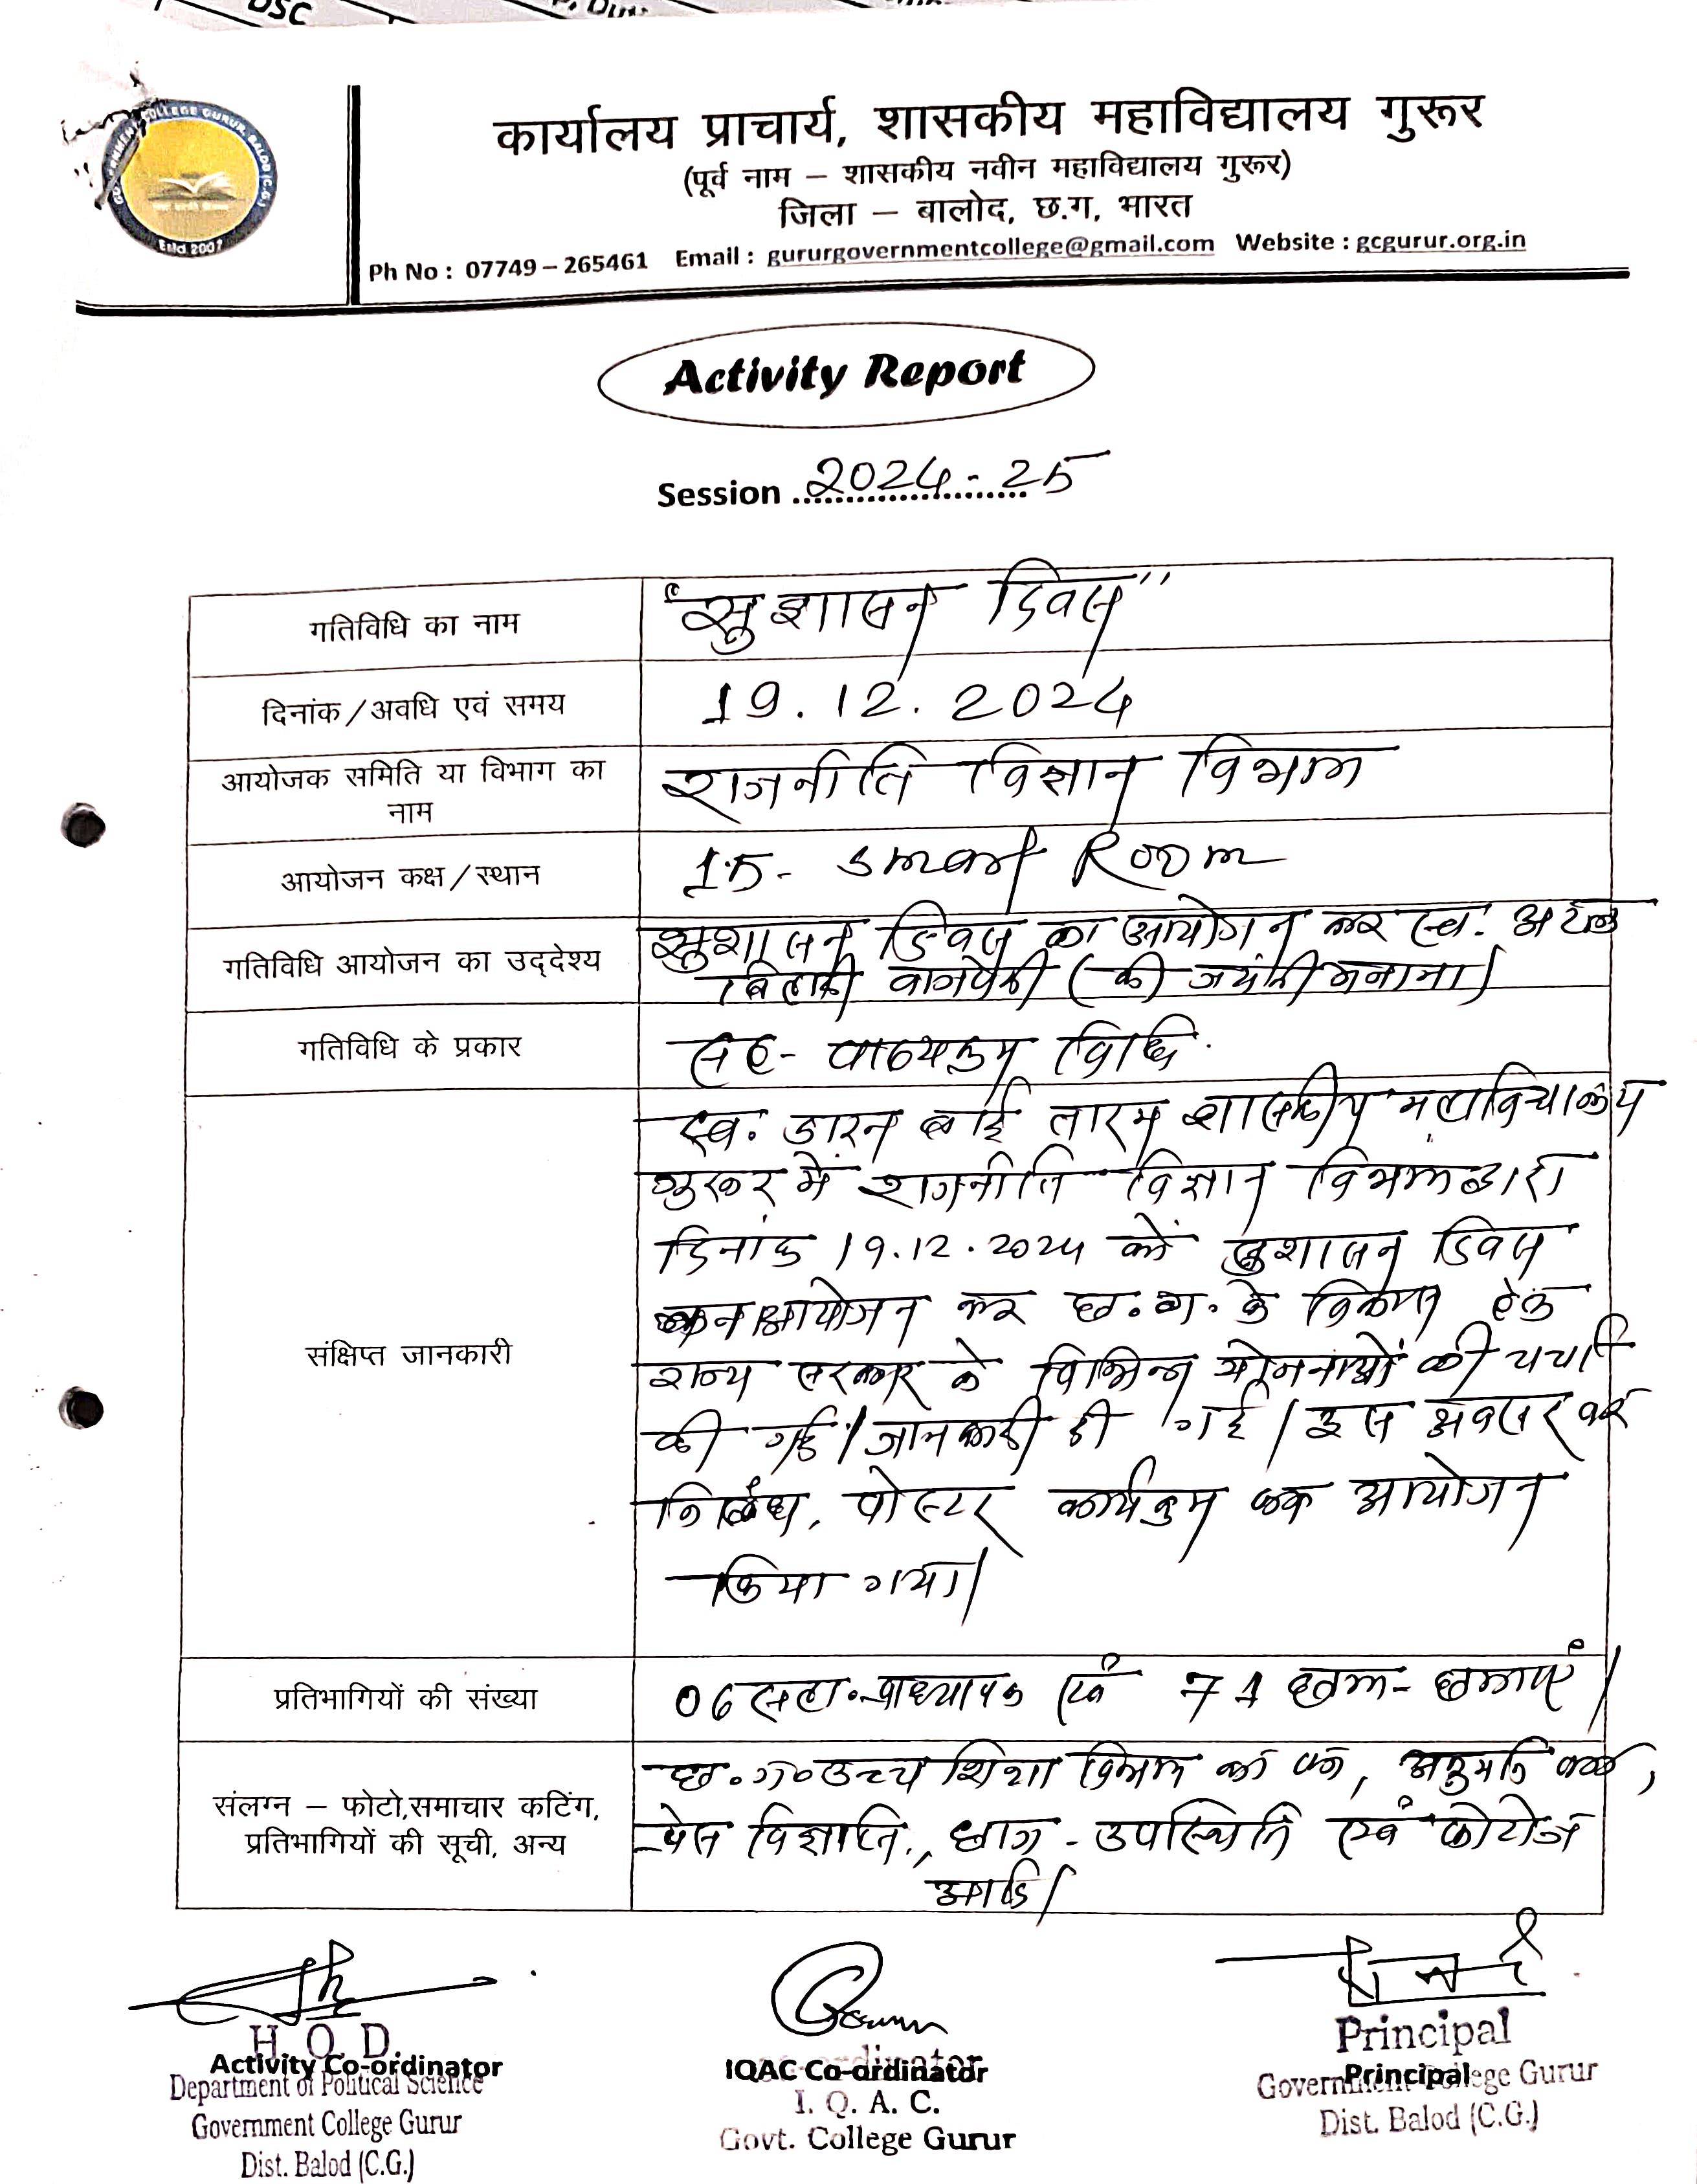 कार्यालय प्राचार्य, शासकीय महाविद्यालय गुरूर
(पूर्व नाम – शासकीय नवीन महाविद्यालय गुरूर)
जिला – बालोद, छ.ग, भारत
Ph No : 07749 – 265461 Email : gururgovernmentcollege@gmail.com Website : gcgurur.org.in
Estd 2007
Activity Report
Session 2024-25
गतिविधि का नाम "सुशासन दिवस"
दिनांक/अवधि एवं समय 19.12.2024
आयोजक समिति या विभाग का नाम राजनीति विज्ञान विभाग
आयोजन कक्ष/स्थान 15- Smart Room
गतिविधि आयोजन का उद्देश्य सुशासन दिवस का आयोजन कर स्व. अटल
बिहारी वाजपेयी की जयंती मनाना।
गतिविधि के प्रकार सह-पाठ्यक्रम विधि
संक्षिप्त जानकारी
स्व. डारन बाई तारम शासकीय महाविद्यालय
गुरूर में राजनीति विज्ञान विभाग द्वारा
दिनांक 19.12.2024 को सुशासन दिवस
आयोजन कर छ.ग. के विकास हेतु
राज्य सरकार के विभिन्न योजनाओं की चर्चा
की गई/जानकारी दी गई। इस अवसर पर
निबंध, पोस्टर कार्यक्रम का आयोजन
किया गया।
प्रतिभागियों की संख्या 06 सहा. प्राध्यापक एवं 71 छात्र-छात्राएं।
संलग्न – फोटो,समाचार कटिंग,
प्रतिभागियों की सूची, अन्य
छ.ग. उच्च शिक्षा विभाग का पत्र, अनुमति पत्र,
प्रेस विज्ञप्ति, छात्र-उपस्थिति एवं फोटोज
आदि।
H. O. D.
Activity Co-ordinator
Department of Political Science
Government College Gurur
Dist. Balod (C.G.)
IQAC Co-ordinator
I. Q. A. C.
Govt. College Gurur
Principal
Principal
Government College Gurur
Dist. Balod (C.G.)